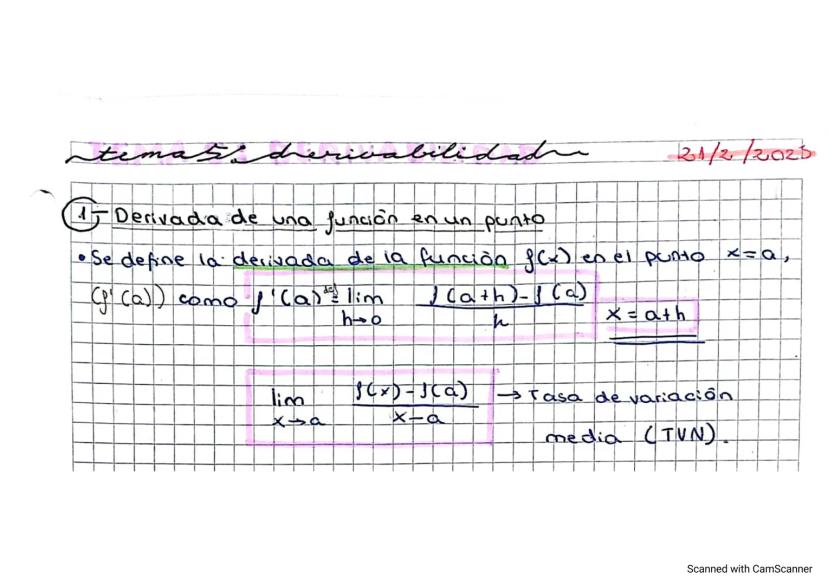 tema 5: derivabilidad
21/2/2025
1- Derivada de una función en un punto
• Se define la derivada de la función f(x) en el punto x=a,
(f'(a)) como f'(a) def= lim h→0 f(a+h)-f(a) / h
x=a+h
lim x→a f(x)-f(a) / x-a → Tasa de variación
media (TVN).
Scanned with CamScanner